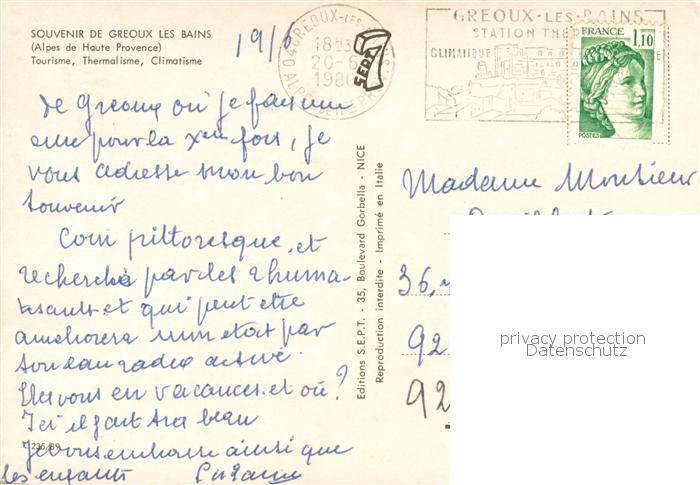 SOUVENIR DE GREOUX LES BAINS
(Alpes de Haute Provence)
Tourisme, Thermalisme, Climatisme
19/6
GREOUX-LES-BAINS
18H
20-6
1980
SEPT
GREOUX·LES·BAINS
STATION THER
CLIMATIQUE
FRANCE
1,10
POSTES
de Greoux où je fais une
cure pour la Xème fois, je
vous adresse mon bon
souvenir
Coin pittoresque, et
recherché par les rhuma-
tisants et qui peut être
améliorera mon état par
son eau radio active.
Etes vous en vacances et où ?
Ici il fait très beau
Je vous embrasse ainsi que
les enfants Suzanne
Editions S.E.P.T. - 35, Boulevard Gorbella - NICE
Reproduction interdite - Imprimé en Italie
Madame Monsieur
36,
92
92
privacy protection
Datenschutz